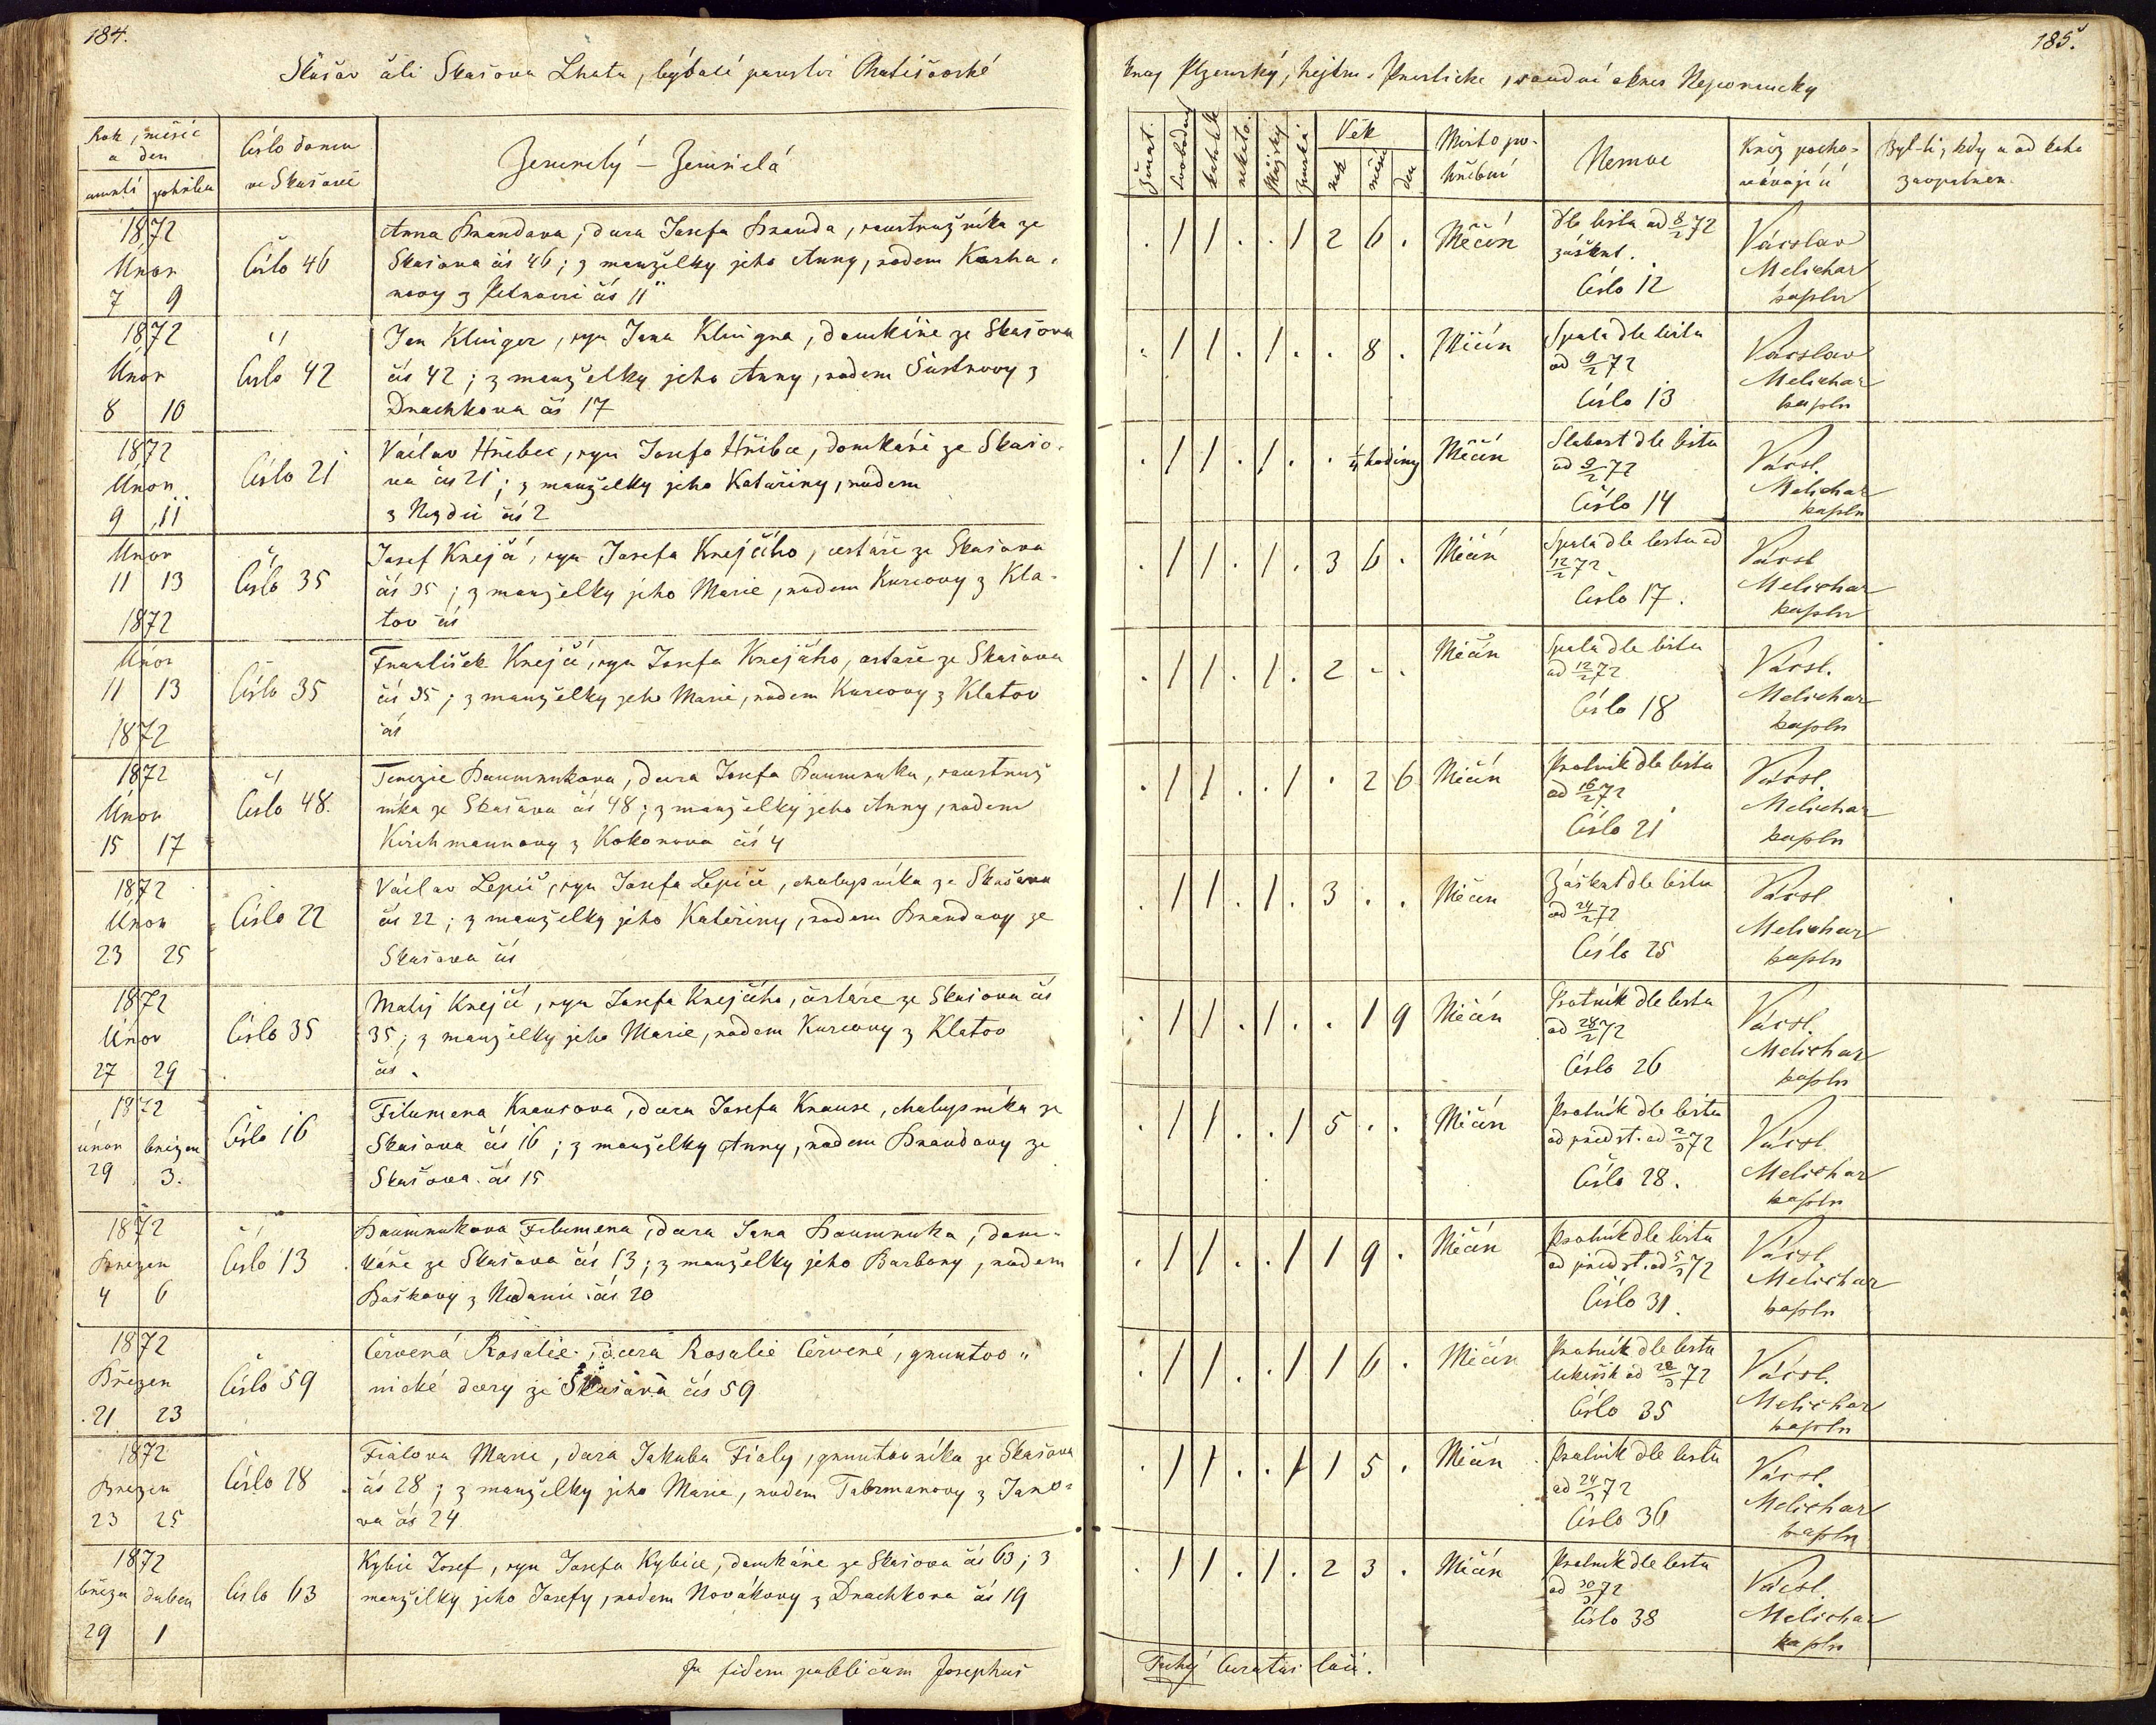 184.
Skašov čili Skašova Lhota, bývalé panství
Rok, měsíc
a den
úmrtí pohřbu
Číslo domu
ve Skašově
Zemřelý – Zemřelá
1872
Únor
7 9
Číslo 46
Anna Brandova, dcera Josefa Branda, soustružníka ze
Skašova čís 46; z manželky jeho Anny, rodem
čís 11
1872
Únor
8 10
Číslo 42
Jan Klinger, syn Jana Klingra, domkáře ze Skašova
čís 42; z manželky jeho Anny, rodem Šustrovy z
Drachkova čís 17
1872
Únor
9 11
Číslo 21
Václav Hřibec, syn Josefa Hřibce, domkáře ze Skašo-
va čís 21; z manželky jeho Kateřiny, rodem
z čís 2
Únor
11 13
1872
Číslo 35
Josef Krejčí, syn Josefa Krejčího, cestáře ze Skašova
čís 35; z manželky jeho Marie, rodem Kurcovy z Kla-
tov čís
Únor
11 13
1872
Číslo 35
František Krejčí, syn Josefa Krejčího, cestáře ze Skašova
čís 35; z manželky jeho Marie, rodem Kurcovy z Klatov
čís
1872
Únor
15 17
Číslo 48.
Terezie Baumrukova, dcera Josefa Baumruka, soustruž
níka ze Skašova čís 48; z manželky jeho Anny, rodem
Kirchmannovy z Kokořova čís 4
1872
Únor
23 25
Číslo 22
Václav Lepič, syn Josefa Lepiče, chalupníka ze Skašova
čís 22; z manželky jeho Kateřiny, rodem Brandovy ze
Skašova čís
1872
Únor
27 29
Číslo 35
Matěj Krejčí, syn Josefa Krejčího, cestáře ze Skašova čís
35; z manželky jeho Marie, rodem Kurcovy z Klatov
čís.
1872
únor březen
29 3.
Číslo 16
Filumena Krausova, dcera Josefa Krause, chalupníka ze
Skašova čís 16; z manželky Anny, rodem Brandovy ze
Skašova čís 15
1872
Březen
4 6
Číslo 13
Baumrukova Filumena, dcera Jana Baumruka, dom-
káře ze Skašova čís 13; z manželky jeho Barbory, rodem
Baškovy z čís 20
1872
Březen
21 23
Číslo 59
Červená Rosalie, dcera Rosalie Červené, gruntov
nické dcery ze Skašova čís 59
1872
Březen
23 25
Číslo 28
Fialova Marie, dcera Jakuba Fialy, gruntovníka ze Skašova
čís 28; z manželky jeho Marie, rodem z Jano-
va čís 24
1872
březen duben
29 1
Číslo 63
Kybic Josef, syn Josefa Kybice, domkáře ze Skašova čís 63; z
manželky jeho Josefy, rodem Novákovy z Drachkova čís 19
In fidem publicam Josephus
185.
kraj Plzeňský, hejtm. Přeštické, soudní okres Nepomucky
Ženat.
Svobodný
katolík
nekato.
Mužský
ženská
Věk
rok
měsíc
den
Místo po-
hřbení
Nemoc
Kněz pocho-
vávající
Byl-li, kdy a od koho
zaopatřen.
. 1 1 . . 1 2 6 .
Měčín
dle listu od 8/2 72
záškrt.
Číslo 12
Vácslav
Melichar
kapln
. 1 1 . 1 . . 8 .
Měčín
Spála dle listu
od 9/2 72
Číslo 13
Vácslav
Melichar
kapln
. 1 1 . 1 . . 1/4 hodiny
Měčín
Slabost dle listu
od 9/2 72
Číslo 14
Vácsl.
Melichar
kapln
. 1 1 . 1 . 3 6 .
Měčín
Spála dle listu od
12/2 72
Číslo 17.
Vácsl
Melichar
kapln
. 1 1 . 1 . 2 - .
Měčín
Spála dle listu
od 12/2 72
Číslo 18
Vácsl.
Melichar
kapln
. 1 1 . . 1 . 2 6
Měčín
Psotník dle listu
od 16/2 72
Číslo 21
Vácsl.
Melichar
kapln
. 1 1 . 1 . 3 . .
Měčín
Záškrt dle listu
od 24/2 72
Číslo 25
Vácsl
Melichar
kapln
. 1 1 . 1 . . 1 9
Měčín
Psotník dle listu
od 28/2 72
Číslo 26
Vácsl.
Melichar
kapln
. 1 1 . . 1 5 . .
Měčín
Psotník dle listu
od předst. od 2/3 72
Číslo 28.
Vácsl
Melichar
kapln
. 1 1 . . 1 1 9 .
Měčín
Psotník dle listu
od předst. od 5/3 72
Číslo 31.
Vácsl.
Melichar
kapln
. 1 1 . . 1 1 6 .
Měčín
Psotník dle listu
od 22/3 72
Číslo 35
Vácsl.
Melichar
kapln
. 1 1 . . 1 1 5 .
Měčín
Psotník dle listu
od 24/3 72
Číslo 36
Vácsl.
Melichar
kapln
. 1 1 . 1 . 2 3 .
Měčín
Psotník dle listu
od 30/3 72
Číslo 38
Vácsl.
Melichar
kapln
Tuhý Curatus loci.